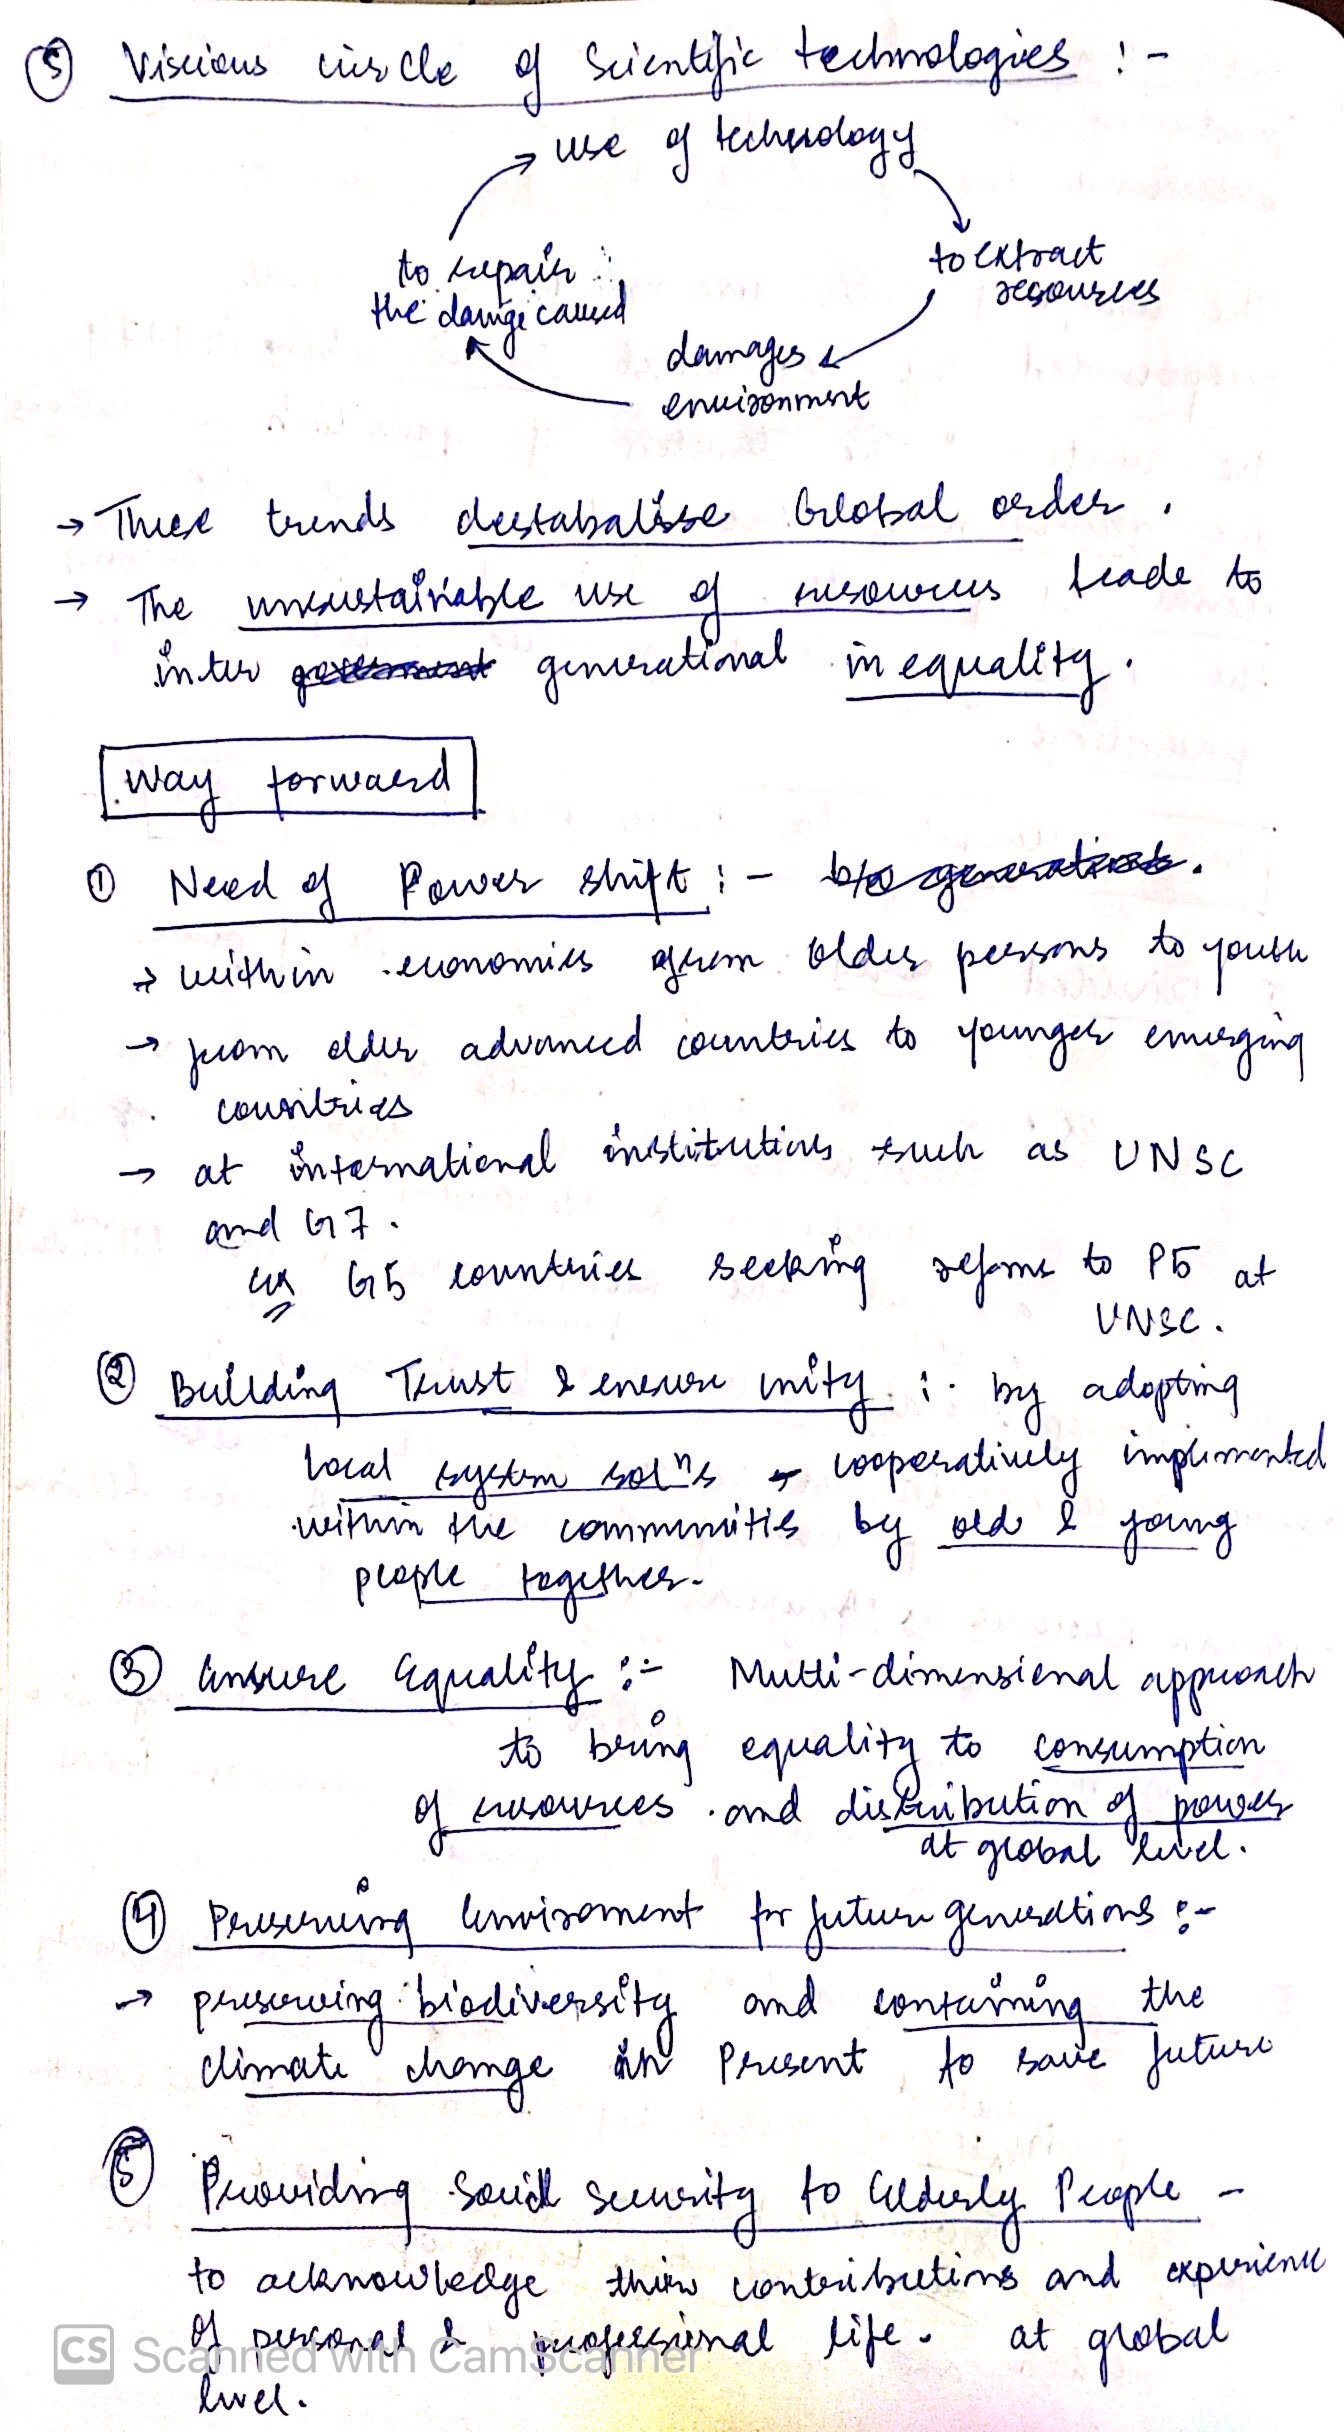 ⑤ Viscious circle of Scientific technologies :-
use of technology
to extract
resources
to repair
the damge caused
damages
environment
→ These trends destabalisse Global order .
→ The unsustainable use of resources leads to
inter generational inequality .
Way forward
① Need of Power shift : -
→ within economies from older persons to youth
→ from older advanced countries to younger emerging
countries
→ at international institutions such as UNSC
and G7 .
ex G5 countries seeking reforms to P5 at
UNSC .
② Building Trust & ensure unity : by adopting
local system solns → cooperatively implemented
within the communities by old & young
people together.
③ Ensure Equality :- Multi-dimensional approach
to bring equality to consumption
of resources and distribution of power
at global level.
④ Preserving Enviroment for future generations :-
→ preserving biodiversity and containing the
climate change in Present to save future
⑤ Providing Social security to Elderly People -
to acknowledge their contributions and experience
of personal & professional life. at global
level.
CS Scanned with CamScanner